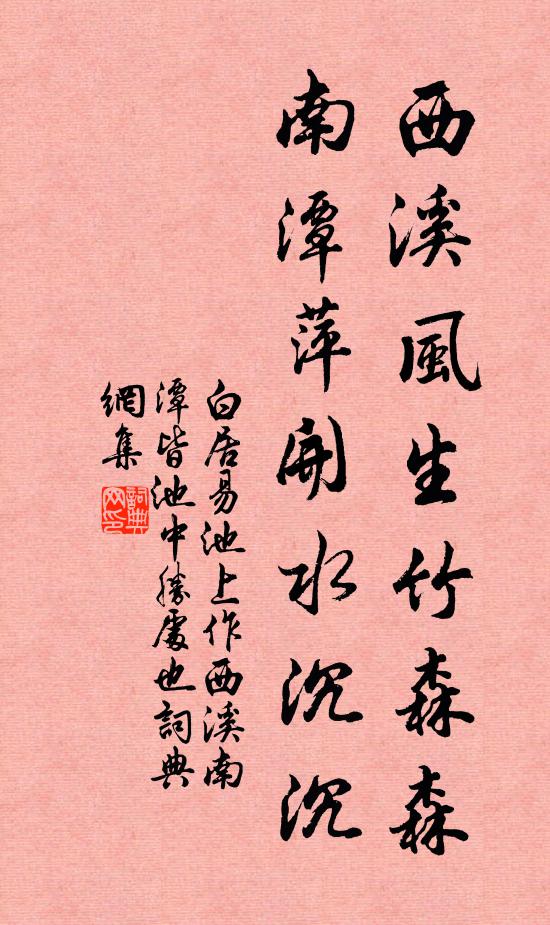 西溪風生竹森森
南潭萍開水沉沉
白居易池上作西溪南
潭皆池中勝處也詞典
網集
詞典
网印